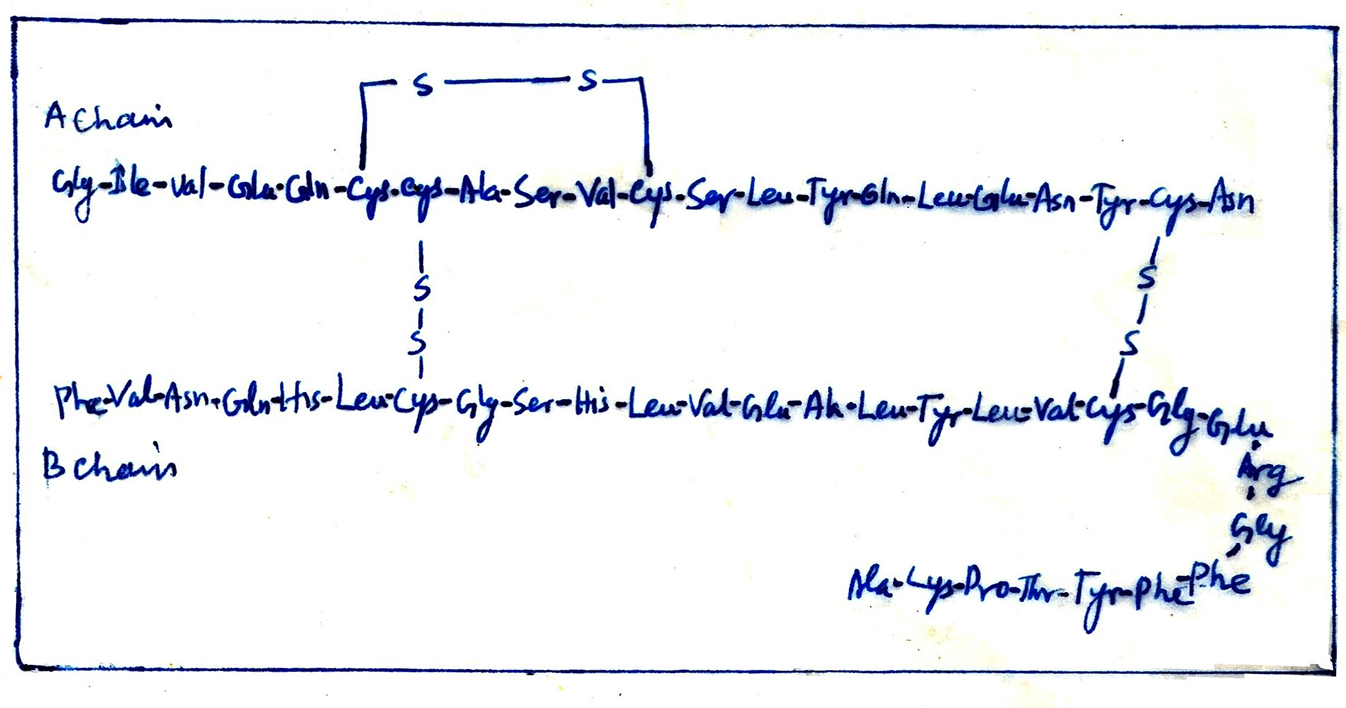 S S
A Chain
Gly-Ile-Val-Glu-Gln-Cys-Cys-Ala-Ser-Val-Cys-Ser-Leu-Tyr-Gln-Leu-Glu-Asn-Tyr-Cys-Asn
S S
S S
Phe-Val-Asn-Gln-His-Leu-Cys-Gly-Ser-His-Leu-Val-Glu-Ala-Leu-Tyr-Leu-Val-Cys-Gly-Glu
B Chain
Arg
Gly
Ala-Lys-Pro-Thr-Tyr-Phe-Phe